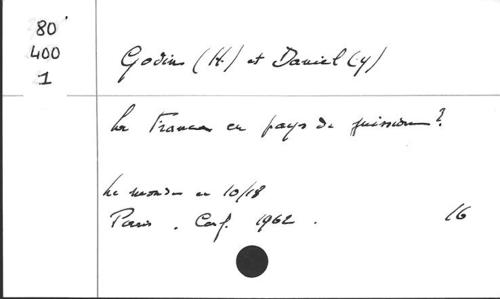 80
400
1
Godin (H.) et Daniel (Y)
La France en pays de mission ?
Le monde en 10/18
Paris . Cerf. 1962 . 16